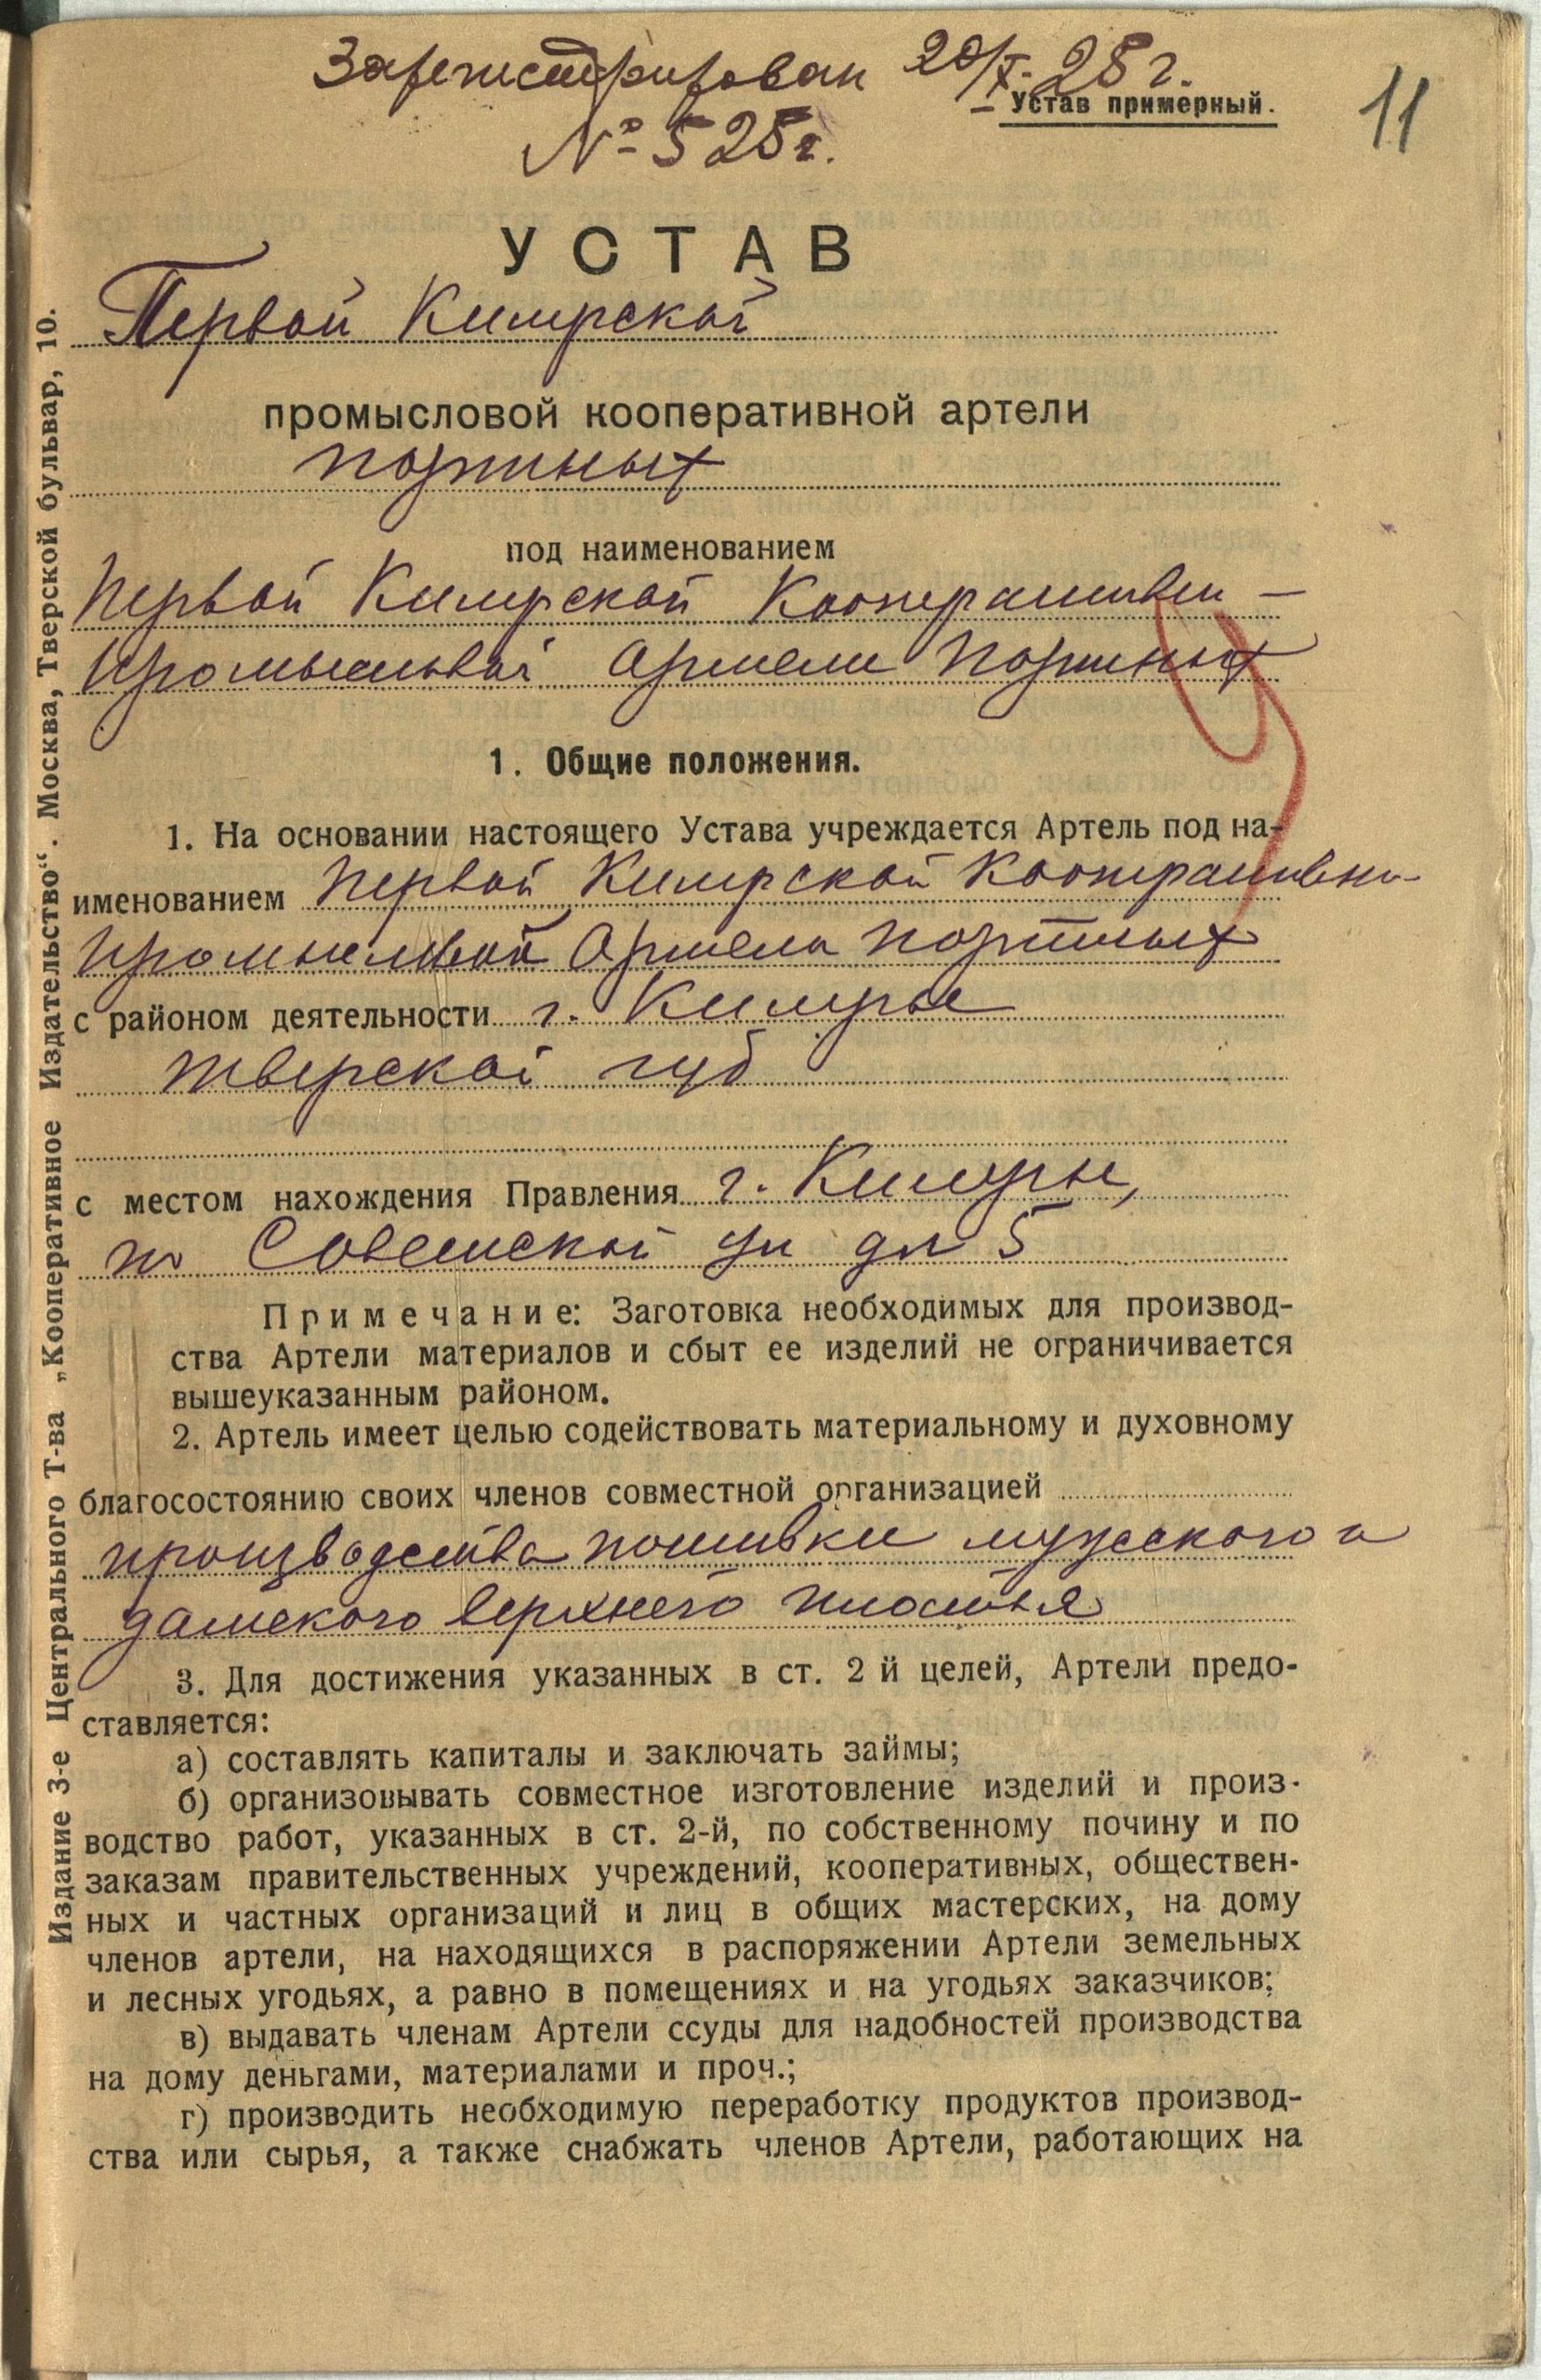 Зарегистрирован 20/X-25г.
Устав примерный.
11
№ 5 25г.
УСТАВ
Первой Кимрской
промысловой кооперативной артели
портных
под наименованием
Первой Кимрской Кооперативн–
Промысловой Артели Портных
1. Общие положения.
1. На основании настоящего Устава учреждается Артель под на-
именованием Первой Кимрской Кооперативно-
Промысловой Артели Портных
с районом деятельности г. Кимры
Тверской губ
с местом нахождения Правления г. Кимры,
по Советской ул д№ 5
Примечание: Заготовка необходимых для производ-
ства Артели материалов и сбыт ее изделий не ограничивается
вышеуказанным районом.
2. Артель имеет целью содействовать материальному и духовному
благосостоянию своих членов совместной организацией
производства пошивки мужского и
дамского верхнего платья
3. Для достижения указанных в ст. 2 й целей, Артели предо-
ставляется:
а) составлять капиталы и заключать займы;
б) организовывать совместное изготовление изделий и произ-
водство работ, указанных в ст. 2-й, по собственному почину и по
заказам правительственных учреждений, кооперативных, обществен-
ных и частных организаций и лиц в общих мастерских, на дому
членов артели, на находящихся в распоряжении Артели земельных
и лесных угодьях, а равно в помещениях и на угодьях заказчиков;
в) выдавать членам Артели ссуды для надобностей производства
на дому деньгами, материалами и проч.;
г) производить необходимую переработку продуктов производ-
ства или сырья, а также снабжать членов Артели, работающих на
Издание 3-е Центрального Т-ва „Кооперативное Издательство“. Москва, Тверской бульвар, 10.